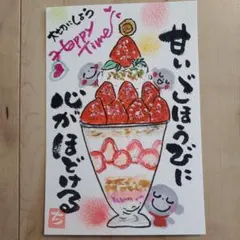 大切にしよう
Happy
Time
甘いごほうびに
心がほどける